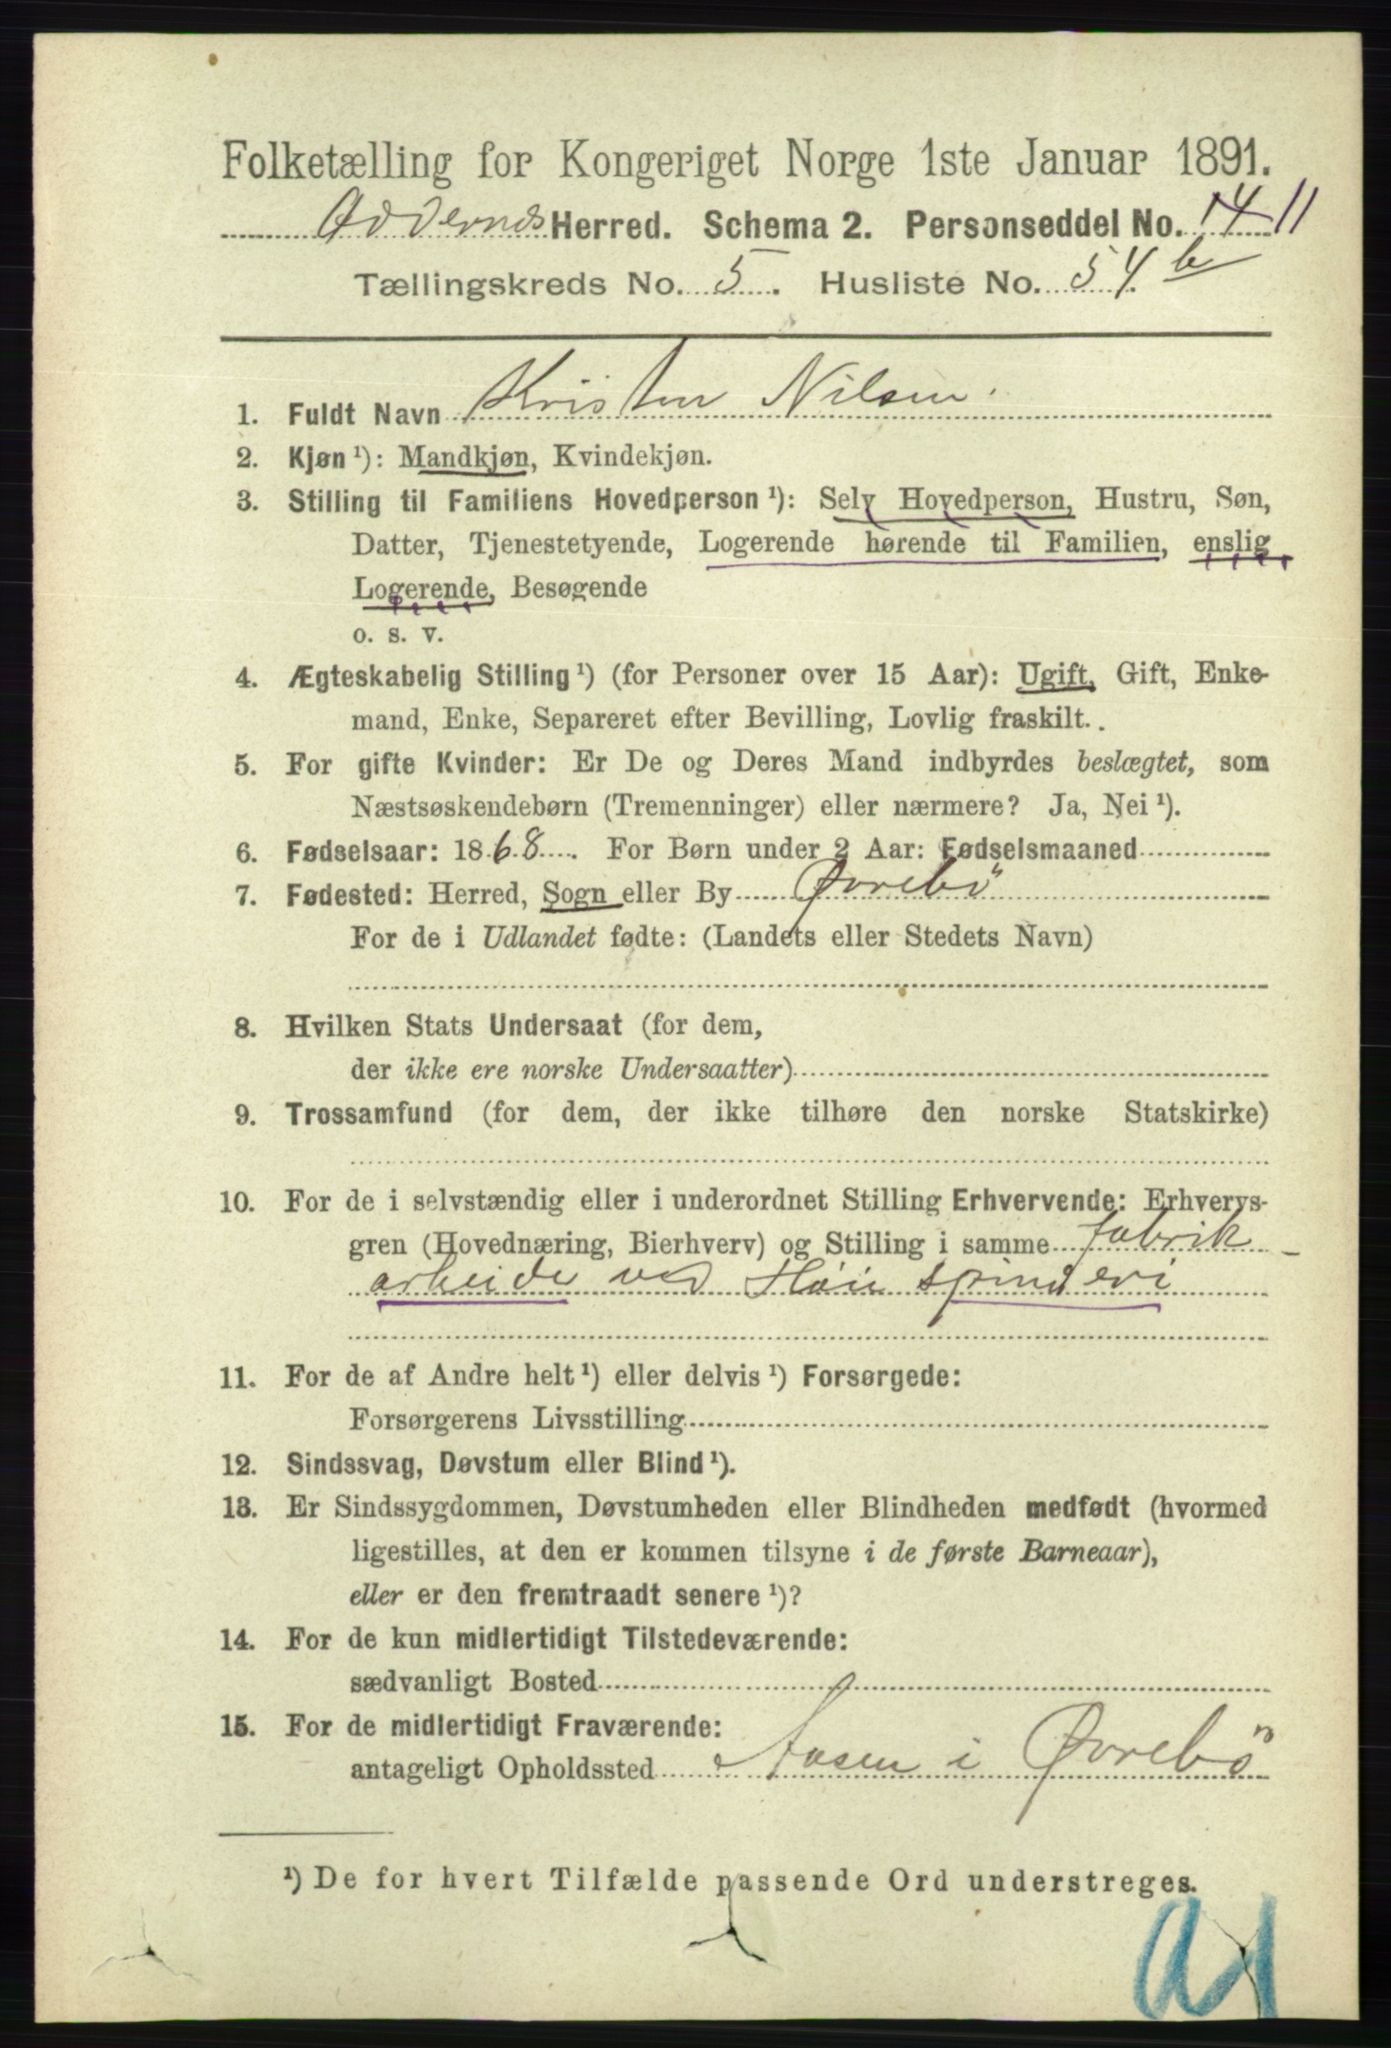 Folketælling for Kongeriget Norge 1ste Januar 1891.
Oddernes Herred. Schema 2. Personseddel No. 14 11
Tællingskreds No. 5. Husliste No. 54 b
1. Fuldt Navn Kristen Nilsen.
2. Kjøn ¹): Mandkjøn, Kvindekjøn.
3. Stilling til Familiens Hovedperson ¹): Selv Hovedperson, Hustru, Søn,
Datter, Tjenestetyende, Logerende hørende til Familien, enslig
Logerende, Besøgende
o. s. v.
4. Ægteskabelig Stilling ¹) (for Personer over 15 Aar): Ugift, Gift, Enke-
mand, Enke, Separeret efter Bevilling, Lovlig fraskilt.
5. For gifte Kvinder: Er De og Deres Mand indbyrdes beslægtet, som
Næstsøskendebørn (Tremenninger) eller nærmere? Ja, Nei ¹).
6. Fødselsaar: 1868. For Børn under 2 Aar: Fødselsmaaned
7. Fødested: Herred, Sogn eller By Øvrebö
For de i Udlandet fødte: (Landets eller Stedets Navn)
8. Hvilken Stats Undersaat (for dem,
der ikke ere norske Undersaatter)
9. Trossamfund (for dem, der ikke tilhøre den norske Statskirke)
10. For de i selvstændig eller i underordnet Stilling Erhvervende: Erhvervs-
gren (Hovednæring, Bierhverv) og Stilling i samme fabrik-
arbeide ved Höie spinderi
11. For de af Andre helt ¹) eller delvis ¹) Forsørgede:
Forsørgerens Livsstilling
12. Sindssvag, Døvstum eller Blind ¹).
13. Er Sindssygdommen, Døvstumheden eller Blindheden medfødt (hvormed
ligestilles, at den er kommen tilsyne i de første Barneaar),
eller er den fremtraadt senere ¹)?
14. For de kun midlertidigt Tilstedeværende:
sædvanligt Bosted
15. For de midlertidigt Fraværende:
antageligt Opholdssted Aasen i Øvrebö
¹) De for hvert Tilfælde passende Ord understreges.